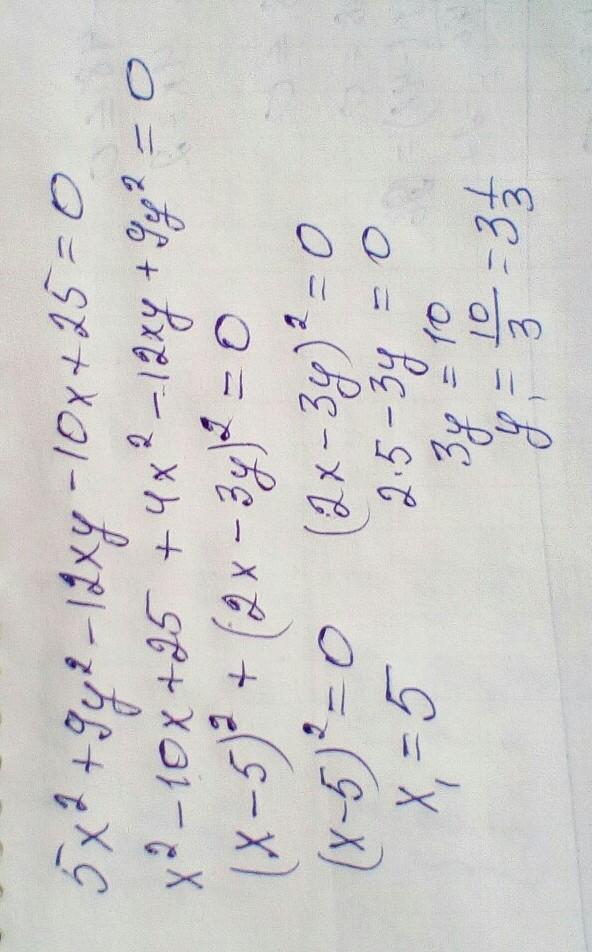 5x² + 9y² - 12xy - 10x + 25 = 0
x² - 10x + 25 + 4x² - 12xy + 9y² = 0
(x - 5)² + (2x - 3y)² = 0
(x - 5)² = 0 (2x - 3y)² = 0
x₁ = 5 2·5 - 3y = 0
3y = 10
y₁ = 10/3 = 3 1/3